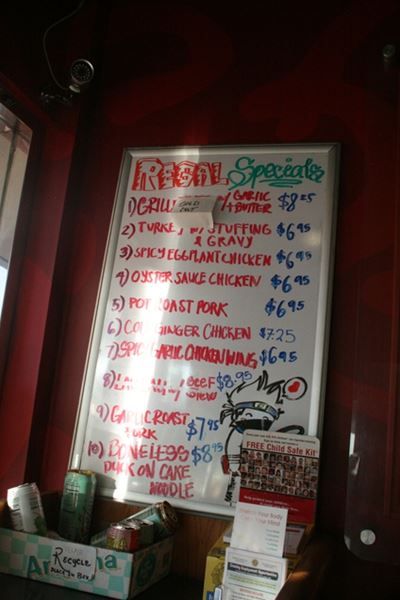 REGAL Specials
1) GRILL W/ GARLIC BUTTER $8.25
SOLD OUT
2) TURKEY W/ STUFFING & GRAVY $6.95
3) SPICY EGGPLANT CHICKEN $6.95
4) OYSTER SAUCE CHICKEN $6.95
5) POT ROAST PORK $6.95
6) GINGER CHICKEN $7.25
7) SPICY GARLIC CHICKEN WING $6.95
8) W/ BEEF STEW $8.95
9) GARLIC ROAST PORK $7.95
10) BONELESS DUCK ON CAKE NOODLE $8.95
FREE Child Safe Kit
Recycle